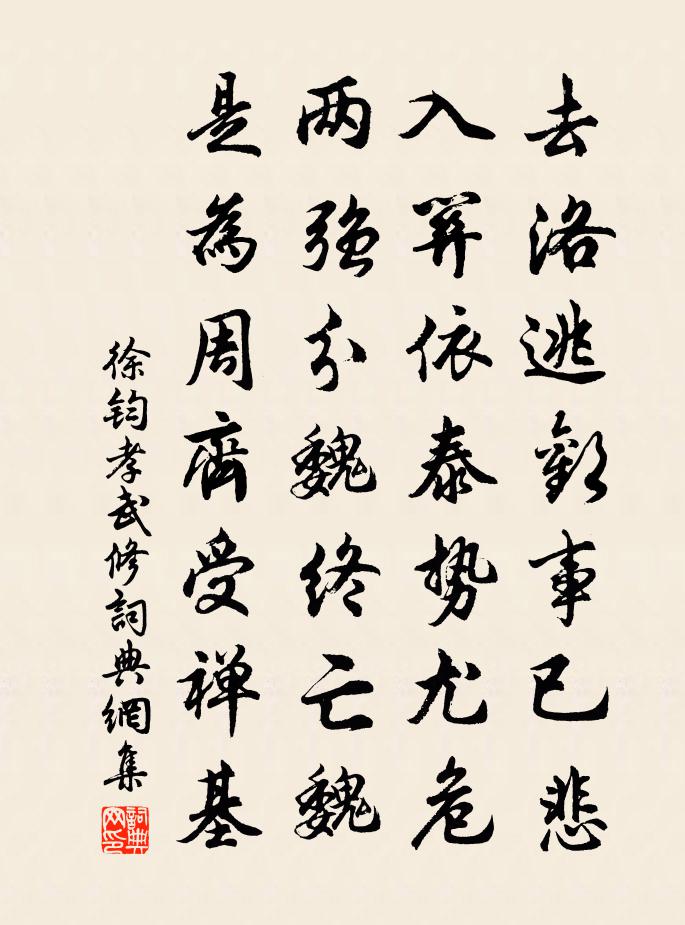 去洛逃歡事已悲
入關依泰势尤危
两强分魏终亡魏
是為周齊受禅基
徐鈞孝武修詞典網集
詞典网印